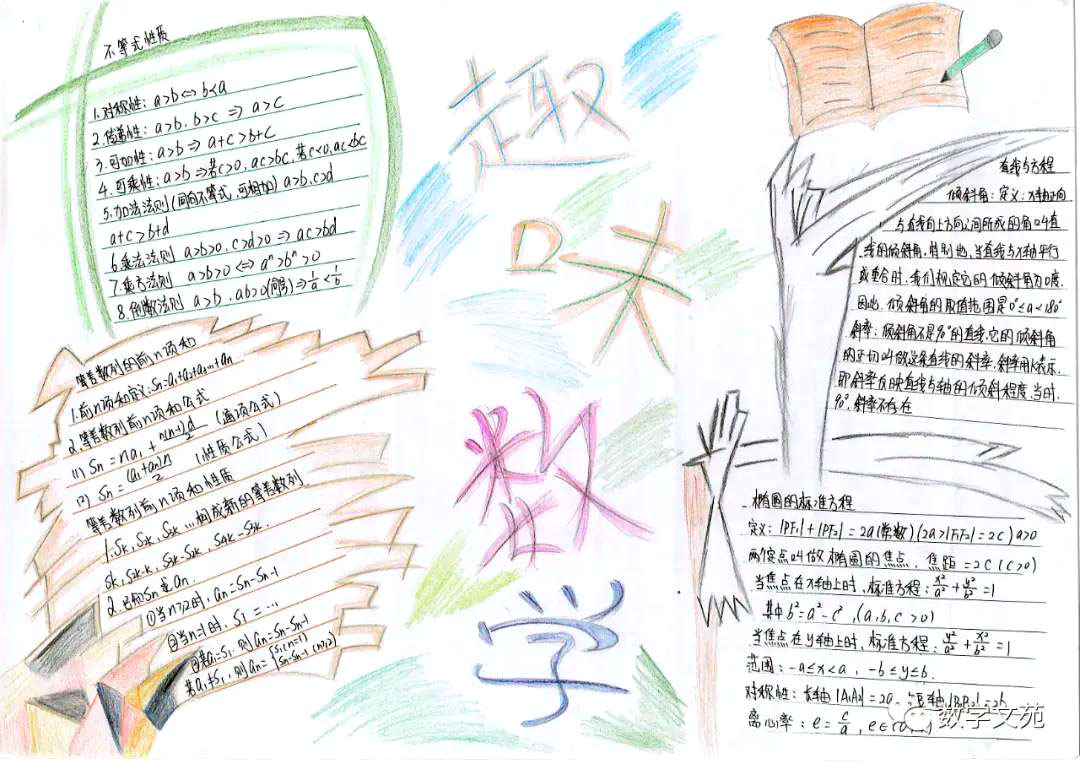 不等式性质
1.对称性：a>b⇔b<a
2.传递性：a>b，b>c ⇒ a>c
3.可加性：a>b ⇒ a+c>b+c
4.可乘性：a>b ⇒若c>0，ac>bc，若c<0，ac<bc
5.加法法则（同向不等式，可相加）a>b，c>d
a+c>b+d
6.乘法法则 a>b>0，c>d>0 ⇒ ac>bd
7.乘方法则 a>b>0 ⇔ aⁿ>bⁿ>0
8.倒数法则 a>b，ab>0(同号)⇒1/a<1/b
等差数列的前n项和
1.前n项和定义：Sn=a₁+a₂+a₃…+an
2.等差数列前n项和公式
(1) Sn=na₁+n(n-1)d/2（通项公式）
(2) Sn=(a₁+an)n/2（性质公式）
等差数列前n项和性质
1.Sk，S2k，S3k…构成新的等差数列
Sk，S2k-k，S3k-S2k，S4k-S3k.
2.已知Sn求an.
①当n≥2时，an=Sn-Sn-1
②当n=1时，S1=…
③若a₁=S₁，则an=Sn-Sn-1
若a₁≠S₁，则an={S₁(n=1) Sn-Sn-1(n≥2)
趣
味
数
学
直线与方程
倾斜角：定义：x轴正向
与直线向上方向之间所成的角α叫直
线的倾斜角.特别地，当直线与x轴平行
或重合时，我们规定它的倾斜角为0度.
因此，倾斜角的取值范围是0°≤α<180°
斜率：倾斜角不是90°的直线，它的倾斜角
的正切叫做这条直线的斜率.斜率用k表示.
即斜率反映直线与轴的倾斜程度.当时，
90°，斜率不存在
椭圆的标准方程
定义：|PF₁|+|PF₂|=2a(常数)(2a>|F₁F₂|=2c)a>0
两定点叫做椭圆的焦点，焦距=2c(c>0)
当焦点在x轴上时，标准方程：x²/a²+y²/b²=1
其中b²=a²-c²，(a,b,c>0)
当焦点在y轴上时，标准方程：y²/a²+x²/b²=1
范围：-a≤x<a，-b≤y≤b.
对称性：长轴|A₁A₂|=2a，短轴|B₁B₂|=2b
离心率：e=c/a，e∈(0,
数学文苑